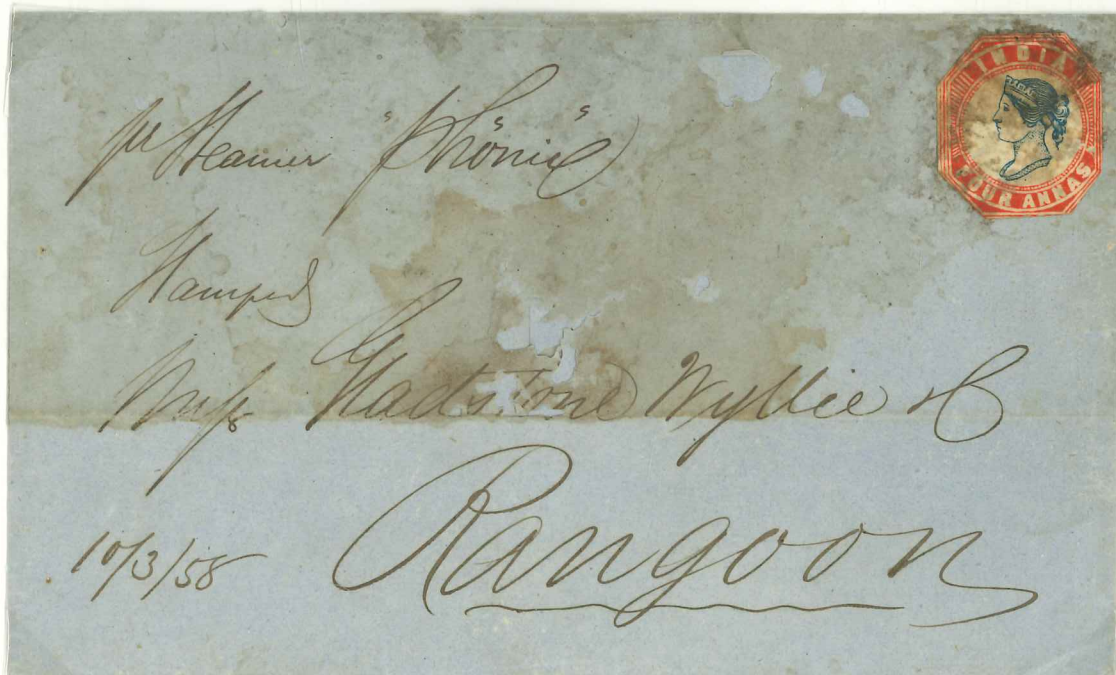 INDIA
FOUR ANNAS
pr Steamer "Phönix"
Stamped
Messs Gladstone Wyllie & C
Rangoon
10/3/58